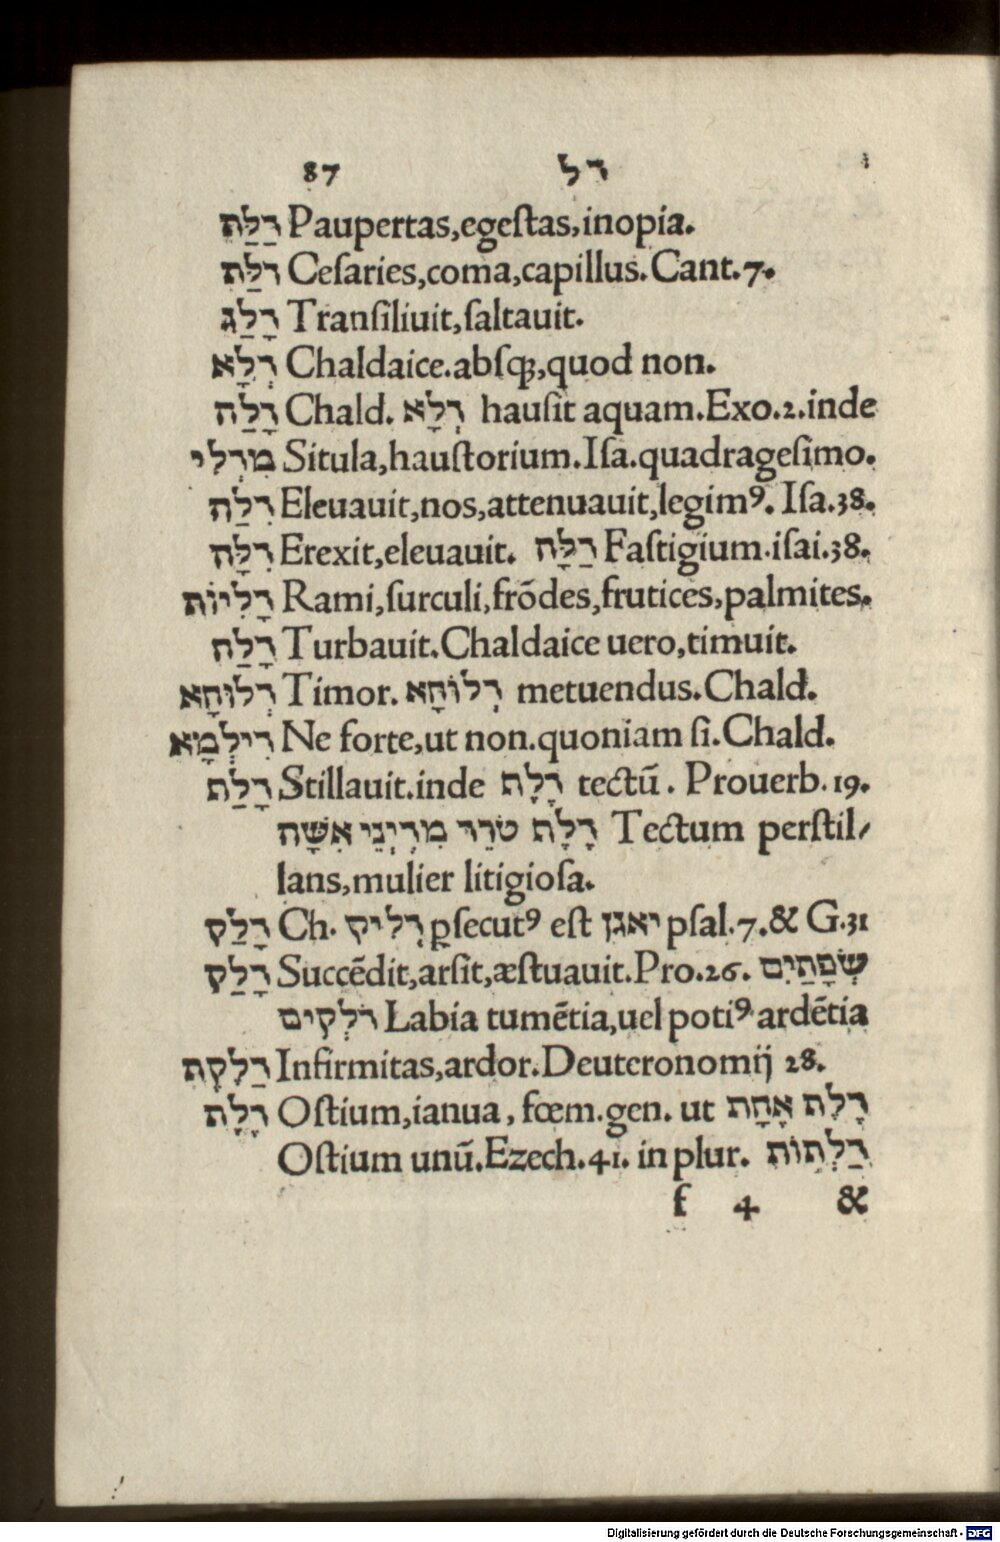 87 דל
דַלַּת Paupertas,egeſtas,inopia.
דַלַּת Ceſaries,coma,capillus.Cant.7.
דָלַג Tranſiliuit,ſaltauit.
דְלָא Chaldaice.abſq;,quod non.
דָלַה Chald. דְלָא hauſit aquam.Exo.2.inde
מִדְלִי Situla,hauſtorium.Iſa.quadrageſimo.
דִלַּה Eleuauit,nos,attenuauit,legimꝰ. Iſa.38.
דִלָּה Erexit,eleuauit. דַלָּה Faſtigium.iſai.38.
דָלִיוֹת Rami,ſurculi,frōdes,frutices,palmites.
דָלַח Turbauit.Chaldaice uero,timuit.
דְלוּחָא Timor. דְלוֹחָא metuendus.Chald.
דִילְמָא Ne forte,ut non.quoniam ſi.Chald.
דָלַת Stillauit.inde דָלָת tectū. Prouerb.19.
דָלָת טֹרֵד מִדְיְנֵי אִשָּׁה Tectum perſtil/
lans,mulier litigioſa.
דָלַק Ch. דְלִיק ꝑſecutꝰ eſt יאגן pſal.7.& G.31
דָלַק Succēdit,arſit,æſtuauit.Pro.26. שְׂפָתַיִם
דֹלְקִים Labia tumētia,uel potiꝰ ardētia
דַלֶקֶת Infirmitas,ardor.Deuteronomij 28.
דָלֶת Oſtium,ianua, fœm.gen. ut דָלֶת אֶחָת
Oſtium unū.Ezech.41. in plur. דַלְתוֹת
f 4 &
Digitalisierung gefördert durch die Deutsche Forschungsgemeinschaft - DFG